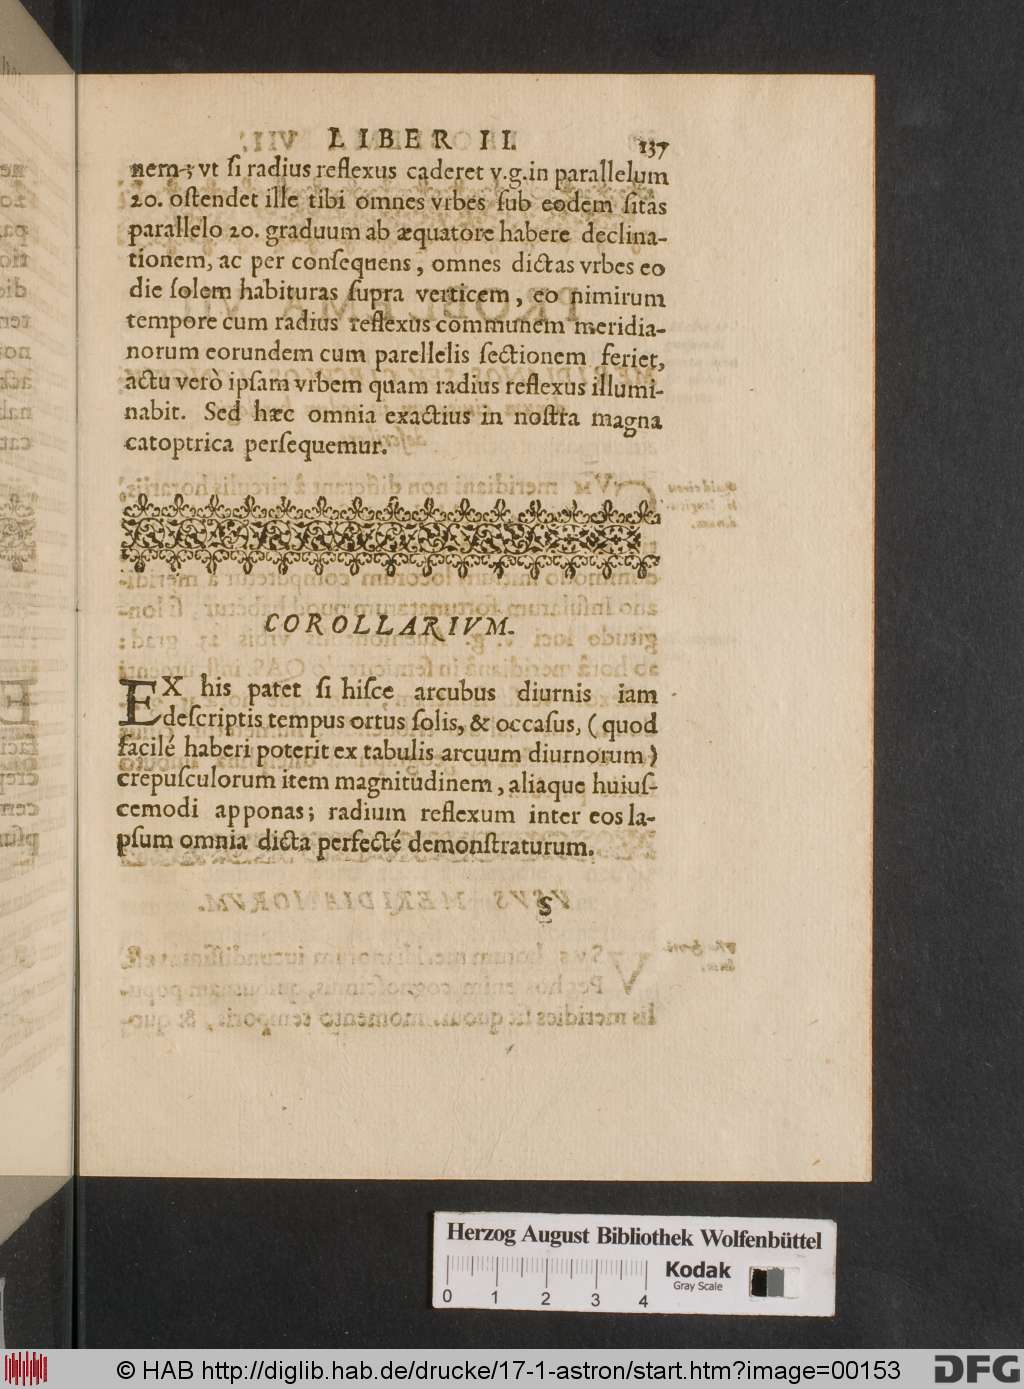 LIBER II. 137
nem; vt ſi radius reflexus caderet v.g. in parallelum
20. oſtendet ille tibi omnes vrbes ſub eodem ſitas
parallelo 20. graduum ab æquatore habere declina-
tionem, ac per conſequens, omnes dictas vrbes eo
die ſolem habituras ſupra verticem, eo nimirum
tempore cum radius reflexus communem meridia-
norum eorundem cum parellelis ſectionem feriet,
actu verò ipſam vrbem quam radius reflexus illumi-
nabit. Sed hæc omnia exactius in noſtra magna
catoptrica perſequemur.
COROLLARIVM.
EX his patet ſi hiſce arcubus diurnis iam
deſcriptis tempus ortus ſolis, & occaſus, (quod
facilé haberi poterit ex tabulis arcuum diurnorum)
crepuſculorum item magnitudinem, aliaque huiuſ-
cemodi apponas; radium reflexum inter eos la-
pſum omnia dicta perfecté demonſtraturum.
S
Herzog August Bibliothek Wolfenbüttel
Kodak
Gray Scale
0 1 2 3 4
© HAB http://diglib.hab.de/drucke/17-1-astron/start.htm?image=00153
DFG